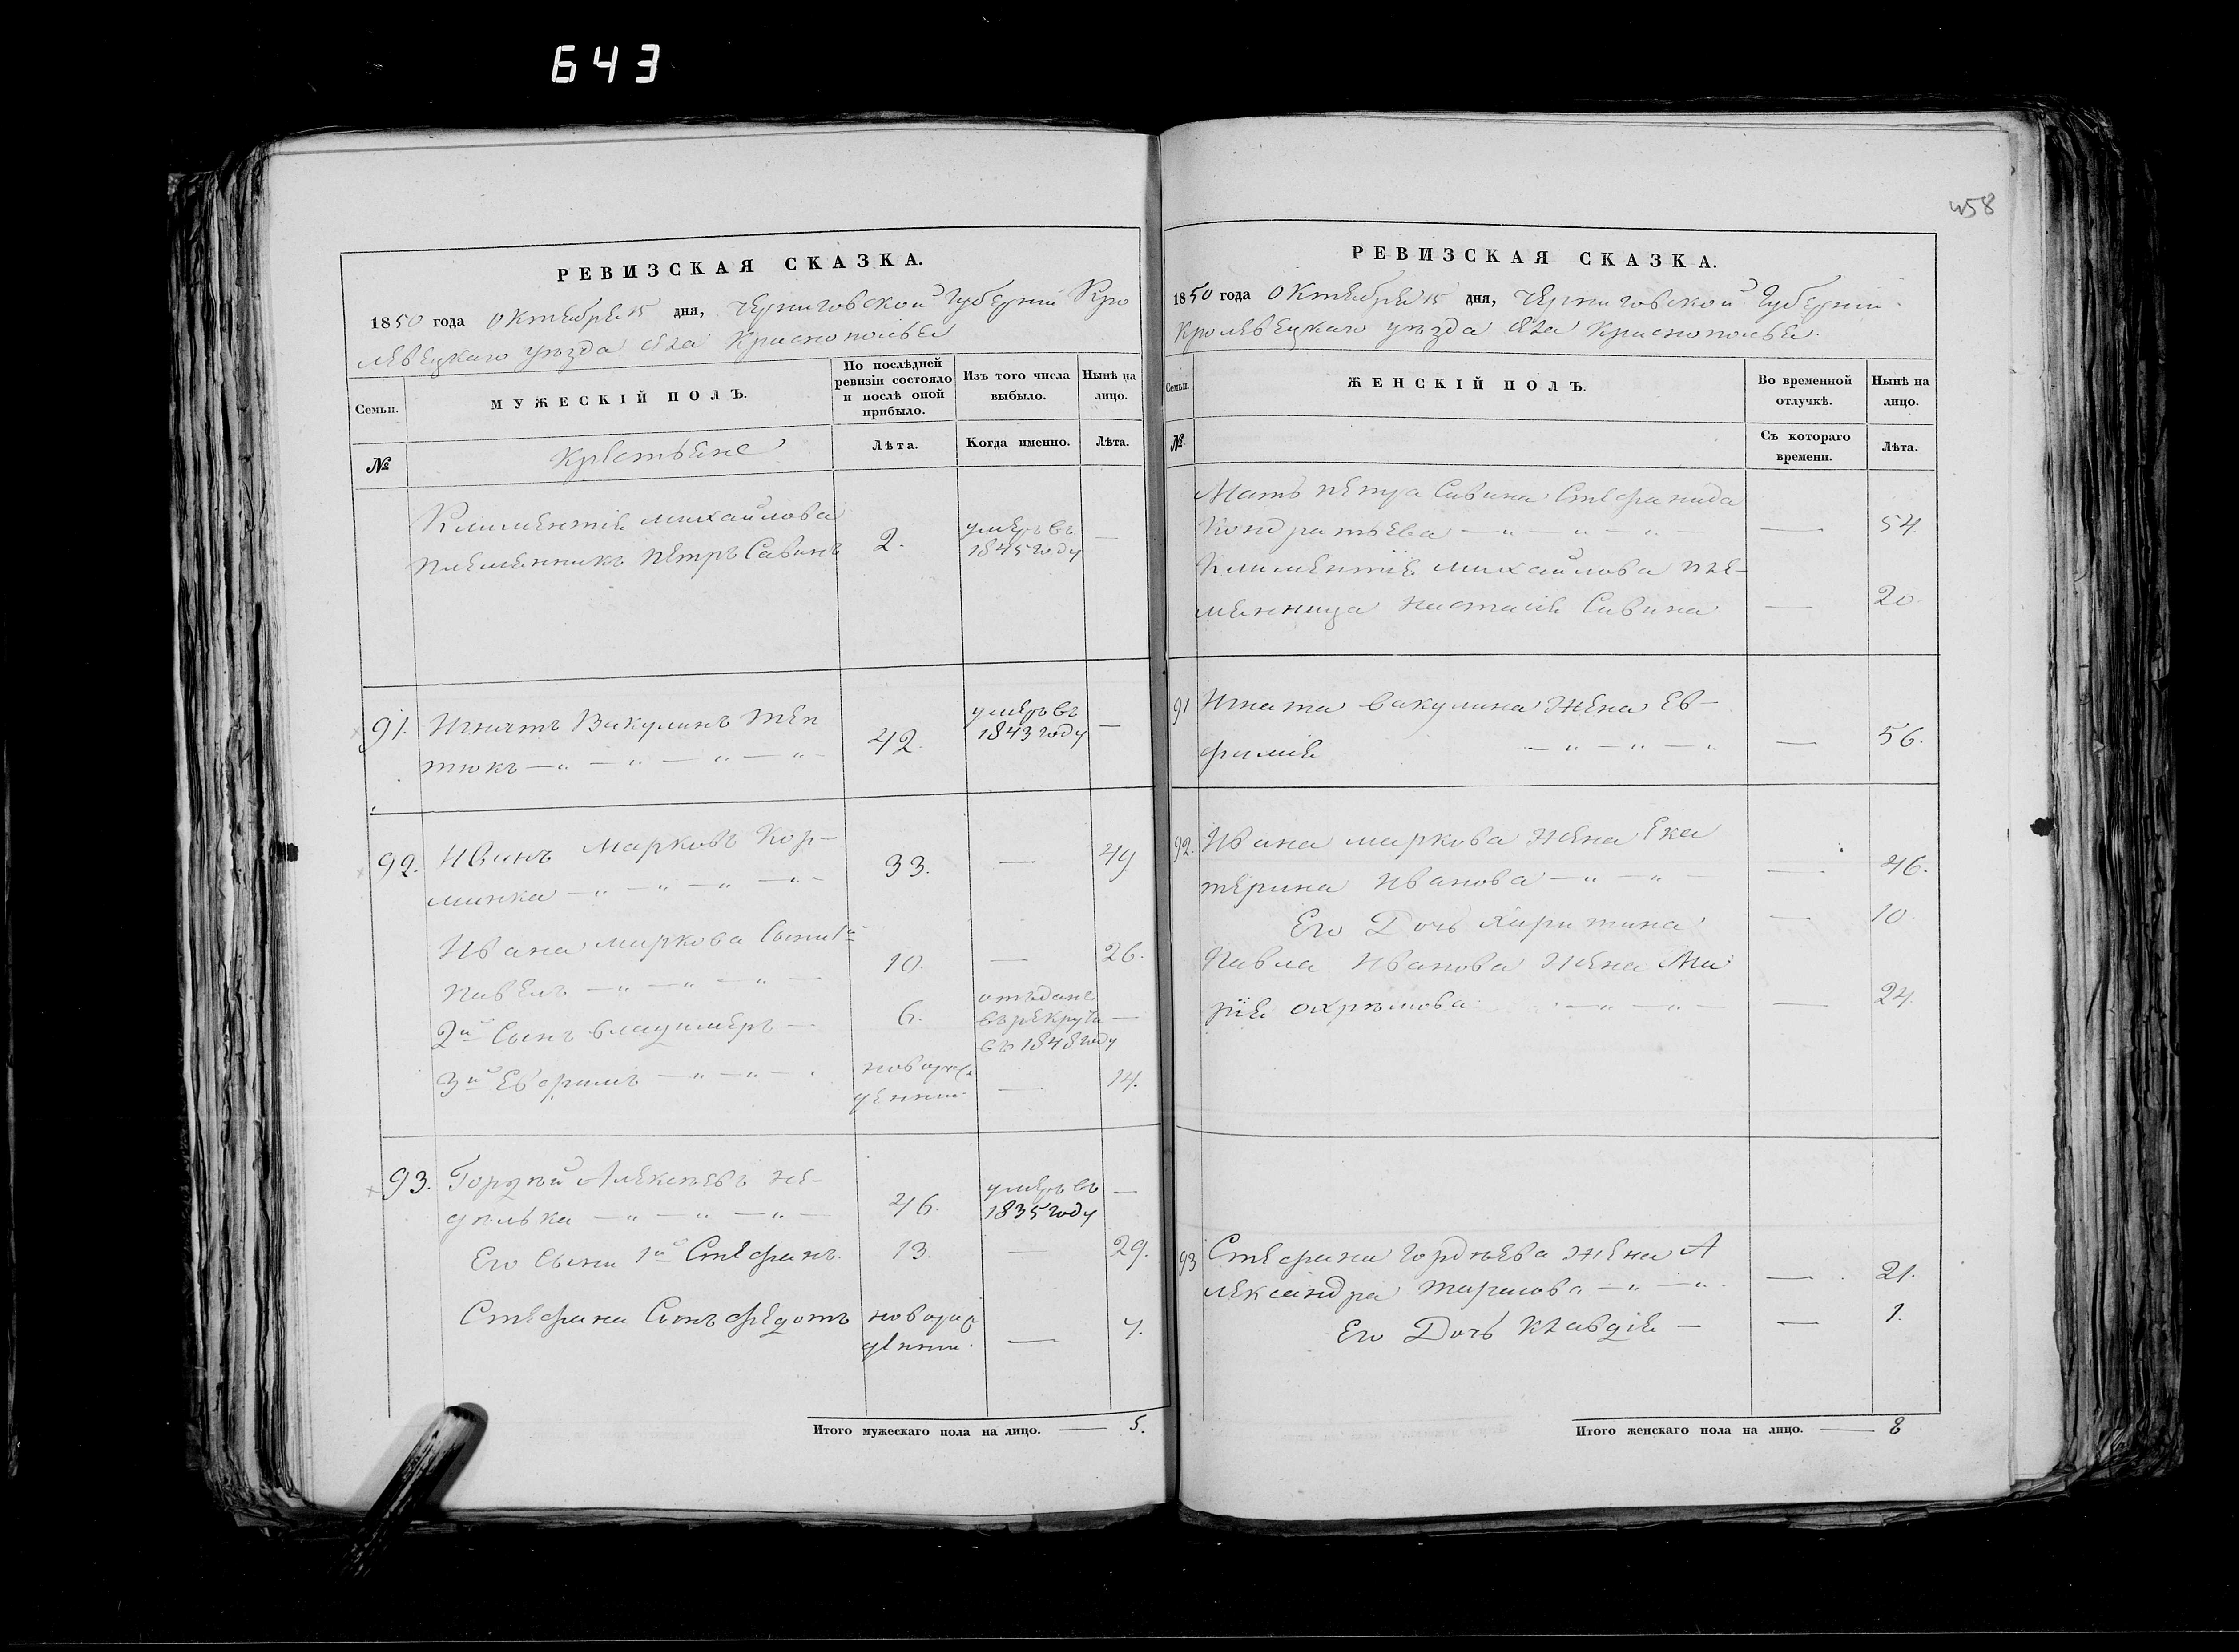 643
458
РЕВИЗСКАЯ СКАЗКА.
1850 года Октября 15 дня, Черниговской Губерніи Кро
левецкаго уѣзда села Краснополья
Семьи.
МУЖЕСКІЙ ПОЛЪ.
По послѣдней ревизіи состояло и послѣ оной прибыло.
Изъ того числа выбыло.
Нынѣ на лицо.
№
Крестьяне
Лѣта.
Когда именно.
Лѣта.
Климентія Михайлова
племянникъ Петръ Савинъ 2. умеръ въ 1845 году —
91. Игнатъ Вакулинъ
тюкъ — 42. умеръ въ 1843 году —
92. Иванъ Марковъ Кор-
33. — 49.
Ивана Маркова сыни 1й
Павелъ — 10. — 26.
2й Сынъ Владимеръ — 6. отъданъ въ рекруты въ 1848 году —
3й Евфимъ — новорож
денны — 14.
93. Гордѣй Алексѣевъ Не-
дѣлька — 46. умеръ въ 1835 году —
Его Сыни 1й Стефанъ 13. — 29.
Стефана Сынъ Федотъ новорож
денны. — 7.
Итого мужескаго пола на лицо. — 5.
РЕВИЗСКАЯ СКАЗКА.
1850 года Октября 15 дня, Черниговской Губерніи
Кролевецкаго уѣзда села Краснополья.
Семьи.
ЖЕНСКІЙ ПОЛЪ.
Во временной отлучкѣ.
Нынѣ на лицо.
№
Съ котораго времени.
Лѣта.
Мать Петра Савина Стефанида
Кондратьева — — 54.
Климентія Михайлова пле-
мянница Настасія Савина — 20.
91 Игната Вакулина жена Ев-
фимія — — 56.
92. Ивана Маркова жена Ека
терина Иванова — — 46.
Его Дочь Харитина — 10
Павла Иванова жена Ма
рія — — 24.
93 Стефана Гордѣева жена А
лександра Тарасова — — 21.
Его Дочь Клавдія — — 1.
Итого женскаго пола на лицо. — 8